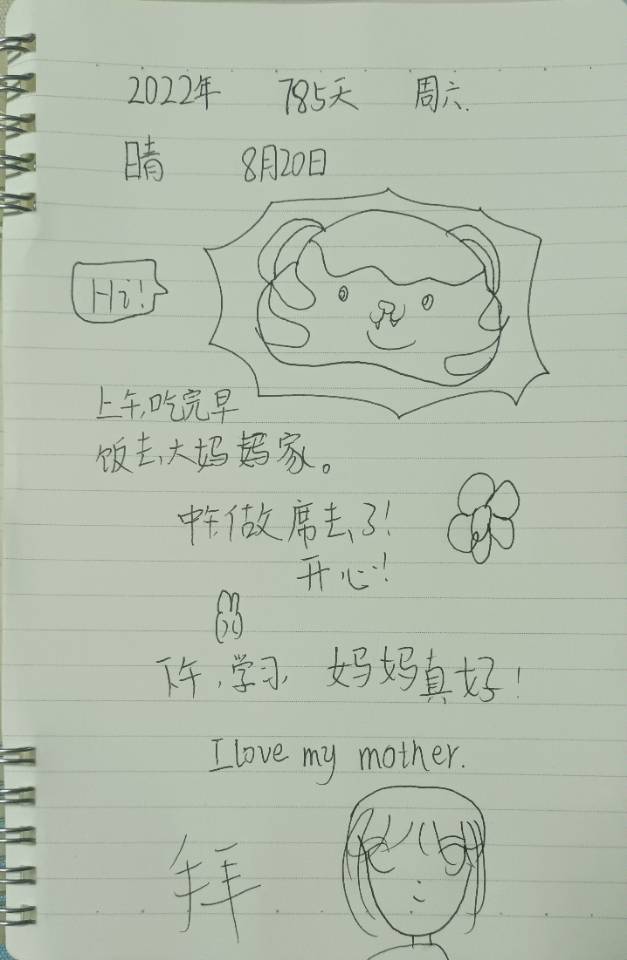 2022年 785天 周六.
晴 8月20日
Hi!
上午,吃完早
饭去,大妈妈家。
中午做席去了!
开心!
下午,学习, 妈妈真好!
I love my mother.
拜